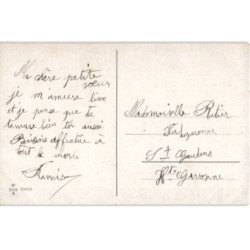 Ma chère petite
sœur
je m'amuse bien
et je pense que tu
t'amuse bien toi aussi
Baisers affectueux à
tout le monde
Mademoiselle
St Gaudens
Hte Garonne